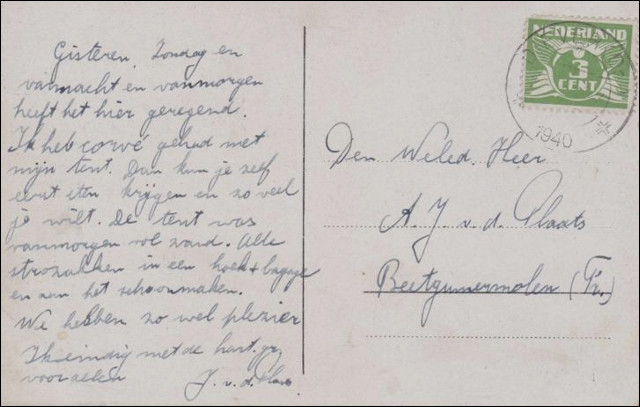 Gisteren, Zondag en
vannacht en vanmorgen
heeft het hier geregend.
Ik heb corvé gehad met
mijn tent. Dan kun je zelf
eerst eten krijgen en zo veel
je wilt. De tent was
vanmorgen vol zand. Alle
strozakken in een hoek + bagage
en aan het schoonmaken.
We hebben zo wel plezier
Ik eindig met de hart. gr.
voor allen J. v. d. Plaats
NEDERLAND
3
CENT
1940
Den Weled. Heer
A. J. v. d. Plaats
Beetgumermolen (Fr.)